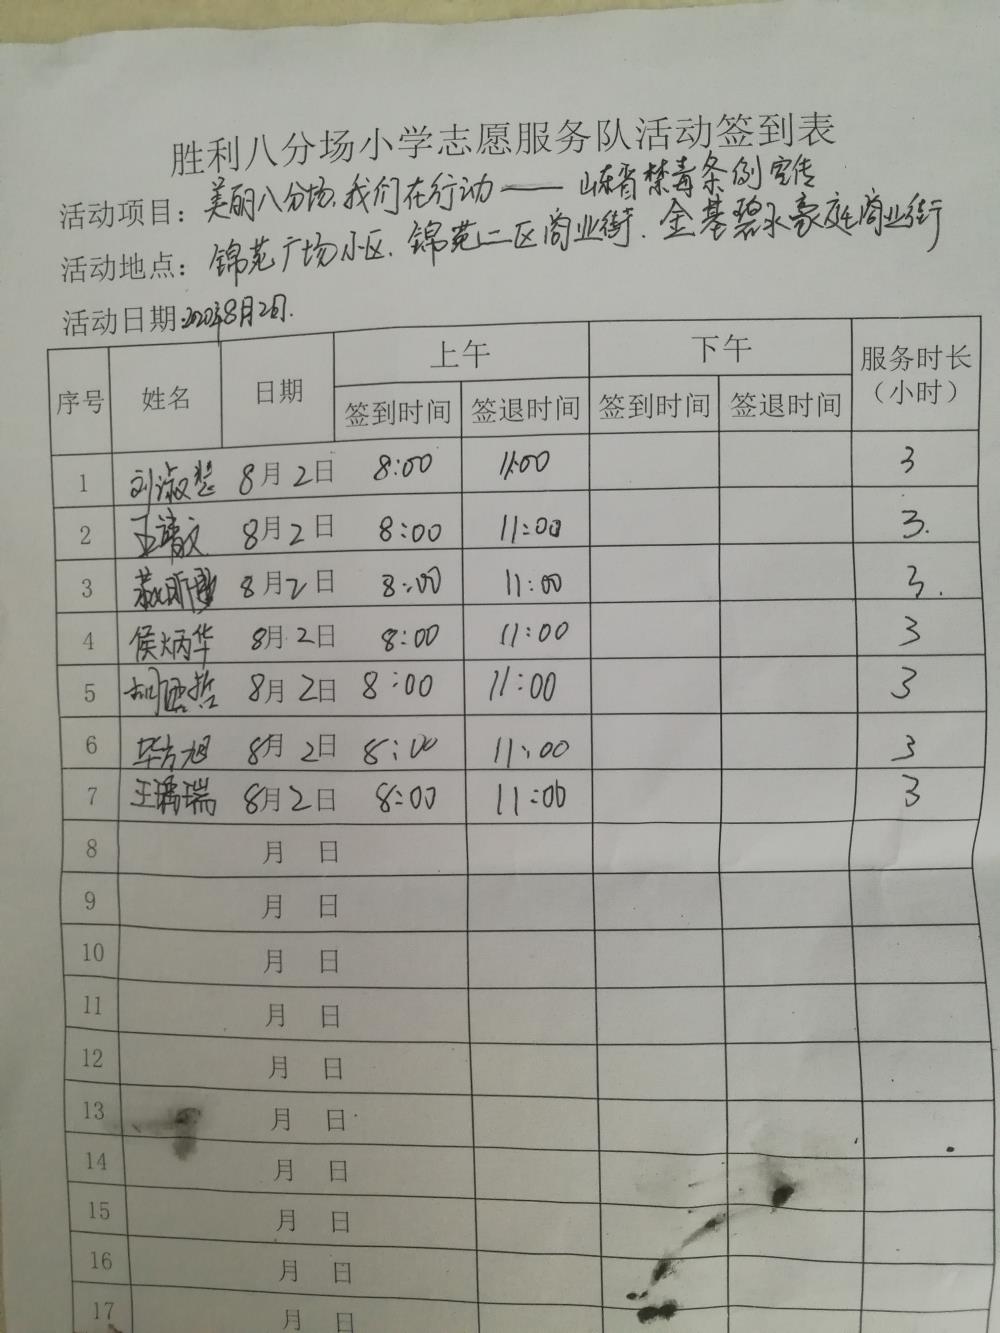 胜利八分场小学志愿服务队活动签到表
活动项目：美丽八分场.我们在行动——山东省禁毒条例宣传
活动地点：锦苑广场小区.锦苑二区商业街.金基碧水豪庭商业街
活动日期:2020年8月2日.
序号 姓名 日期 上午 下午 服务时长（小时）
签到时间 签退时间 签到时间 签退时间
1 刘淑 8月2日 8:00 11:00 3
2 王靖文 8月2日 8:00 11:00 3.
3 8月2日 8:00 11:00 3.
4 侯炳华 8月2日 8:00 11:00 3
5 胡 哲 8月2日 8:00 11:00 3
6 毕方旭 8月2日 8:00 11:00 3
7 王 瑞 8月2日 8:00 11:00 3
8 月 日
9 月 日
10 月 日
11 月 日
12 月 日
13 月 日
14 月 日
15 月 日
16 月 日
17 月 日